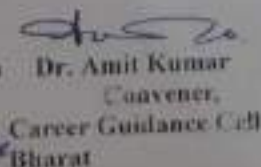 Dr. Amit Kumar
Convener,
Career Guidance Cell
Bharat